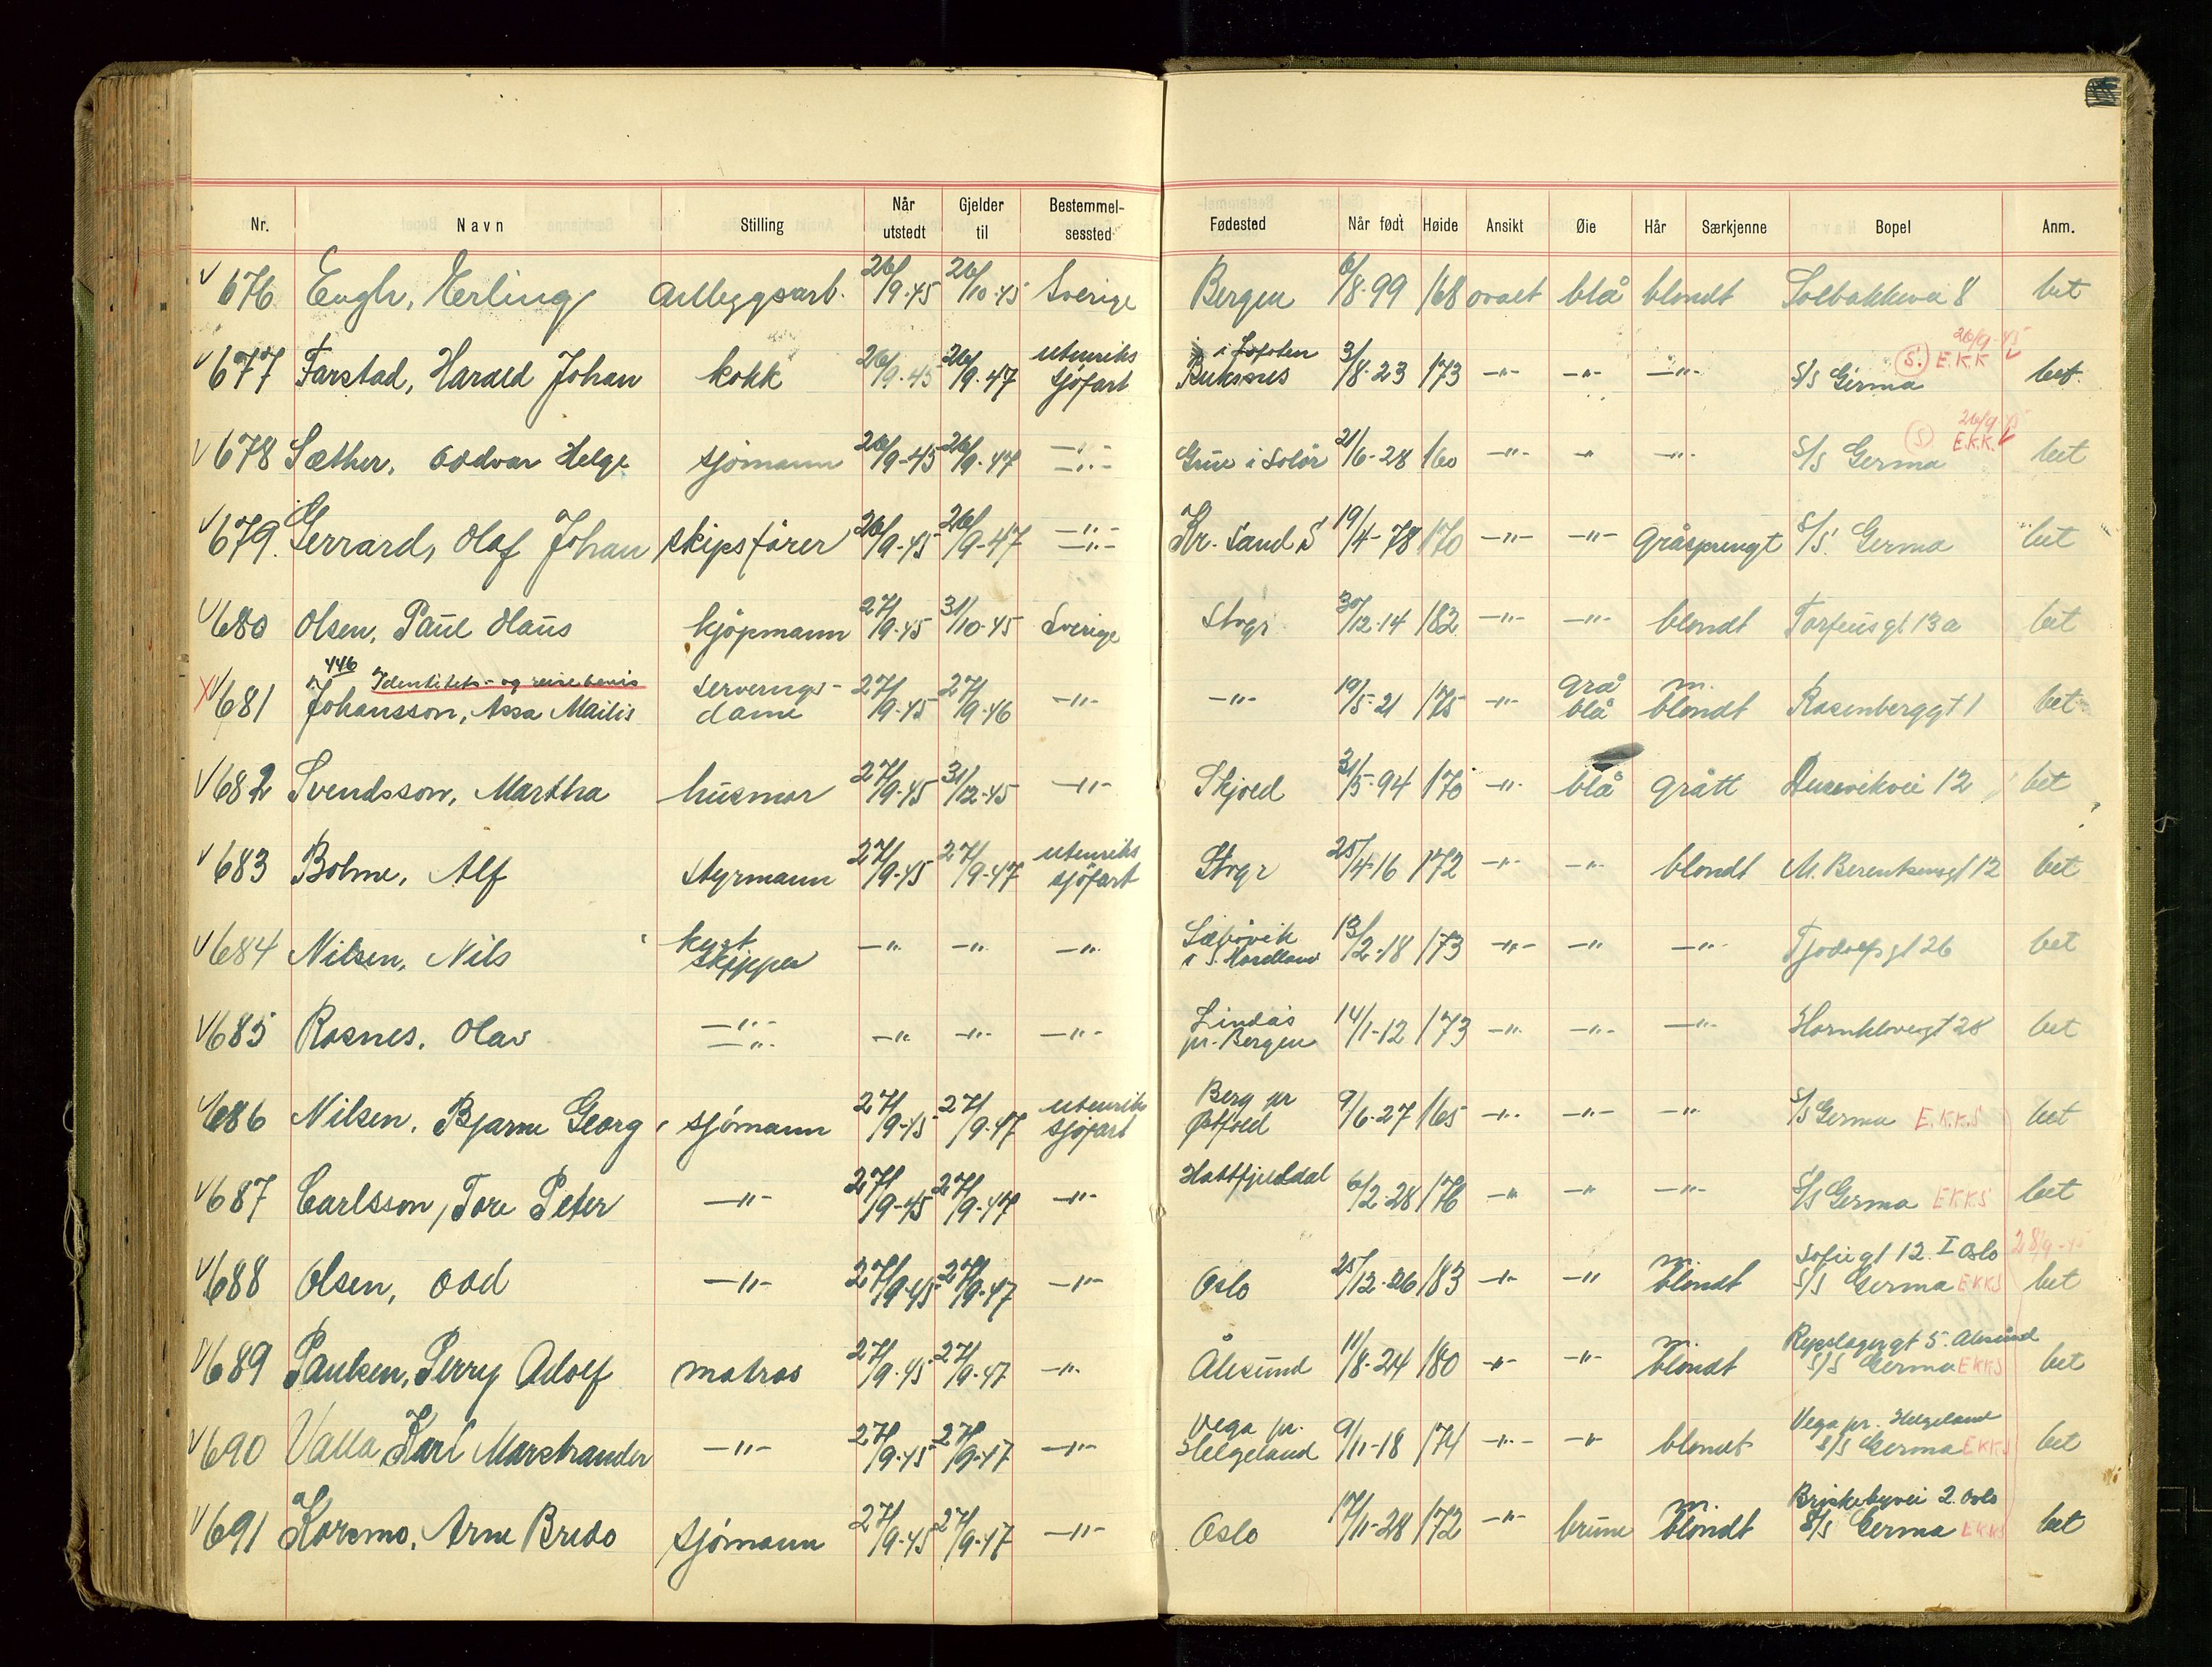 Nr. Navn Stilling Når utstedt Gjelder til Bestemmel-sessted Fødested Når født Høide Ansikt Øie Hår Særkjenne Bopel Anm.
√ 676 Engh, Erling Anleggsarb. 26/9-45 26/10-45 Sverige Bergen 6/8-99 168 ovalt blå blondt Solbakkevei 8 bet
√ 677 Farstad, Harald Johan kokk 26/9-45 26/9-47 utenriks sjøfart Buksnes i Lofoten 3/8-23 173 -"- -"- -"- S/S Germa (S.) E.K.K 26/9-45 √ bet.
√ 678 Sæther, Oddvar Helge sjømann 26/9-45 26/9-47 -"- -"- Grue i Solør 21/6-28 160 -"- -"- -"- S/S Germa (S) E.K.K. 26/9-45 √ bet
√ 679. Gerrard, Olaf Johan skipsfører 26/9-45 26/9-47 -"- -"- Kr. Sand S 19/4-78 170 -"- -"- gråsprengt S/S. Germa bet
√ 680 Olsen, Paul Haus kjøpmann 27/9-45 31/10-45 Sverige Stvgr. 30/12-14 182 -"- -"- blondt Torfeusgt 13a bet
X √ 681 446 Identitets- og reisebevis Johansson, Assa Mailis serverings-dame 27/9-45 27/9-46 -"- -"- 19/5-21 175 -"- grå blå m. blondt Rosenberggt 1 bet
√ 682 Svendsson, Martha husmor 27/9-45 31/12-45 -"- Skjold 31/5-94 170 -"- blå grått Dusevikvei 12 bet
√ 683 Bohne, Alf styrmann 27/9-45 27/9-47 utenriks sjøfart Stvgr 25/4-16 172 -"- -"- blondt M. Berentsensgt 12 bet
√ 684 Nilsen, Nils kyst skipper -"- -"- -"- Sæbøvik i S. Hordland 13/2-18 173 -"- -"- -"- Tjodolfsgt 26 bet
√ 685 Rosnes, Olav -"- -"- -"- -"- -"- Lindås pr. Bergen 14/1-12 173 -"- -"- -"- Hornklovesgt 28 bet
√ 686 Nilsen, Bjarne Georg, sjømann 27/9-45 27/9-47 utenriks sjøfart Berg pr Østfold 9/6-27 165 -"- -"- -"- S/S Germa E.K.K.S bet
√ 687 Carlsson, Tore Peter -"- 27/9-45 27/9-47 -"- Hattfjelldal 6/2-28 176 -"- -"- -"- S/S Germa EKKS bet
√ 688 Olsen, Odd -"- 27/9-45 27/9-47 -"- Oslo 25/12-26 183 -"- -"- m. blondt Sofiegt 12. I Oslo S/S Germa EKKS 28/9-45 bet
√ 689 Paulsen, Perry Adolf matros 27/9-45 27/9-47 -"- Ålesund 11/8-24 180 -"- -"- m. blondt Repslagergt 5. Ålesund S/S Germa EKKS bet
√ 690 Valla Karl Marstrander -"- 27/9-45 27/9-47 -"- Vega pr. Helgeland 9/11-18 174 -"- -"- blondt Vega pr. Helgeland S/S Germa EKKS bet
√ 691 Korsmo, Arne Bredo sjømann 27/9-45 27/9-47 -"- Oslo 17/11-28 172 -"- brune m. blondt Briskebyvei 2. Oslo S/S Germa EKKS bet